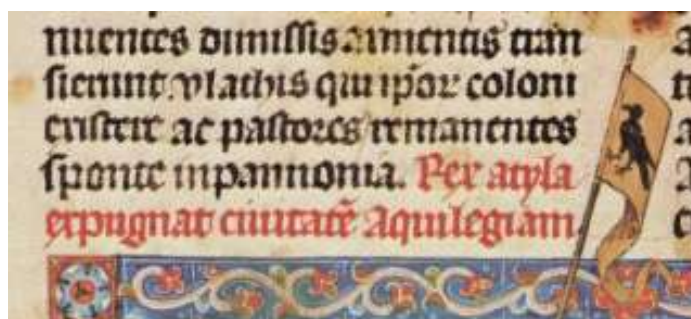 nuentes dimissis armentis tran
sierunt. vlachis qui ipōr coloni
existere ac pastores remanentes
sponte in pannonia. Rex atyla
expugnat ciuitatē Aquilegiam.